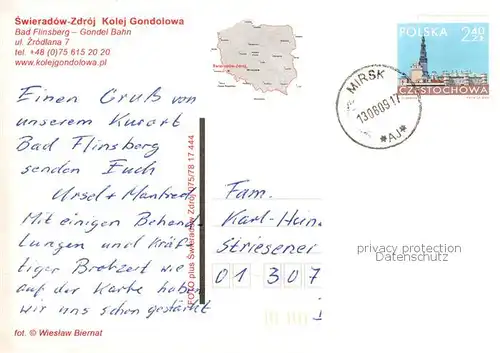 Świeradów-Zdrój Kolej Gondolowa
Bad Flinsberg – Gondel Bahn
ul. Źródlana 7
tel. +48 (0)75 615 20 20
www.kolejgondolowa.pl
Świeradów-Zdrój
POLSKA 2,40 ZŁ
CZĘSTOCHOWA
MIRSK
130809 17
*AJ*
Einen Gruß von
unserem Kurort
Bad Flinsberg
senden Euch
Ursel + Manfred
Mit einigen Behand-
lungen und kräf-
tiger Brotzeit wie
auf der Karte haben
wir uns schon gestärkt
FOTO plus Świeradów Zdrój 075/78 17 444
Fam.
Karl-Hein
Striesener
01 307
privacy protection
Datenschutz
fot. © Wiesław Biernat